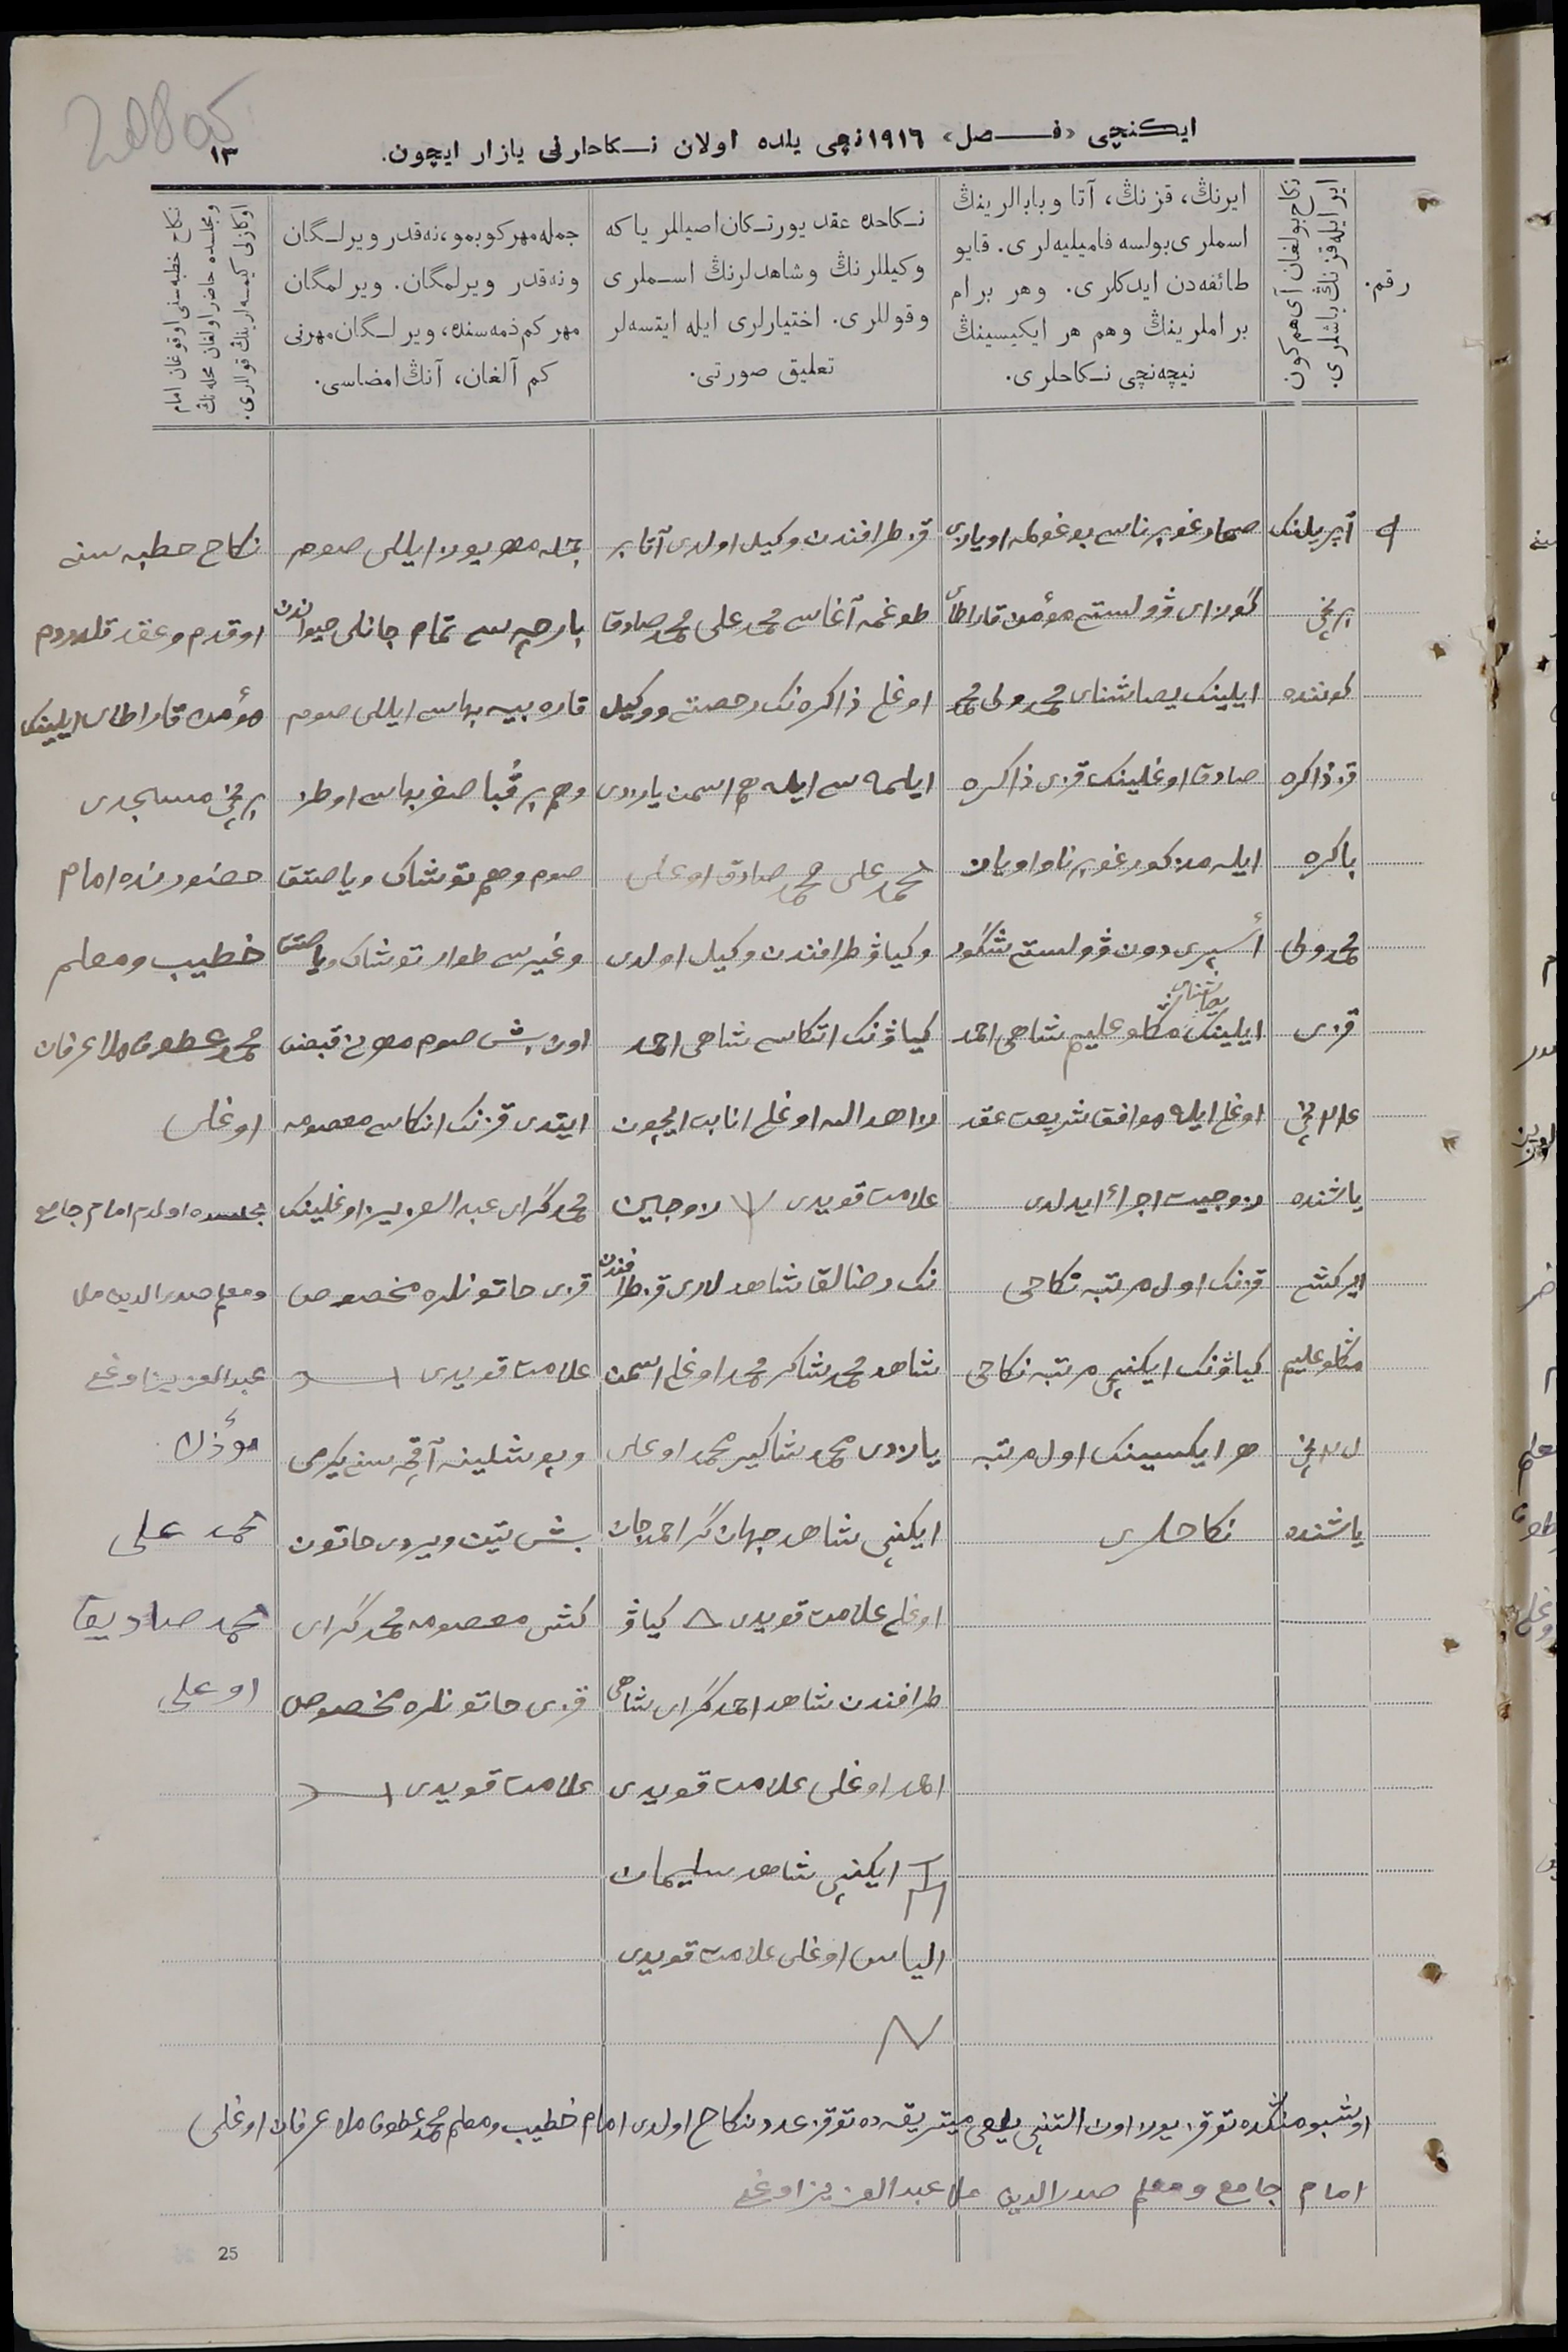 208 об
ایکنچی «فـــصل» ١٩١٦نچی یلده اولان نـکاحلرنی یازار ایچون.
١٣
رقم.
نکاح بولغان آی هم کون
ایر ایله قزنڭ باشلری.
ایرنڭ، قزنڭ، آتا وبابالرینڭ
اسملری بولسه فامیلیه‌لری. قایو
طائفه‌دن ایدکلری. وهر برام
براملرینڭ وهم هر ایکیسینڭ
نیچه‌نچی نـکاحلری.
نـکاحده عقد یورتـکان اصیللر یا که
وکیللرنڭ وشاهدلرنڭ اسـملری
وقوللری. اختیارلری ایله ایتسه‌لر
تعلیق صورتی.
جمله مهر کوبمو، نه‌قدر ویرلـگان
ونه‌قدر ویرلمگان. ویرلمگان
مهر کم ذمه‌سنده، ویرلـگان مهرنی
کم آلغان، آنڭ امضاسی.
نکاح خطبه سنی اوقوغان امام
ومجلسده حاضر اولغان محله‌نڭ
اوکازلی کیمسه‌لرینڭ قوللری.
٩
آپریلنک
برنچی
کوننده
قز ذاکره
باکره
محمدولی
قزی
نچی
یاشنده
ایر کشی
منکلوعلیم
نچی
یاشنده
صمار غوبرناسی بوغولمه اویازی
ڤولستی مؤمن قاراطای
ایلینک یصاشنای محمدولی محمد
صادق اوغلینک قزی ذاکره
ایله مذکور غوبرنا و اویازن
ڤولستی شنگور
ایلینک منکلوعلیم شاهی احمد
یصاشنای
اوغلی ایله موافق شریعت عقد
زوجیت اجراء ایدلدی
قزنک اول مرتبه نکاحی
کیاڤنک ایکنچی مرتبه نکاحی
هر ایکسینک اول مرتبه
نکاحلری
قز طرافندن وکیل اولدی آتا بر
طوغمه آغاسی محمدعلی محمدصادق
اوغلی ذاکره‌نک رخصتی ووکیل
ایلمه سی ایله هم اسمن یازدی
محمدعلی محمدصادق اوغلی
وکیاڤ طرافندن وکیل اولدی
کیاڤنک اتکاسی شاهی احمد
زاهدالله اوغلی اثابت ایچون
علامت قویدی زوجین
نک رضالق شاهدلری قز طرافندن
شاهد محمدشاکر محمد اوغلی اسمن
یازدی محمدشاکیر محمد اوغلی
ایکنچی شاهد جهان گر احمدجان
اوغلی علامت قویدی کیاڤ
طرافندن شاهد احمدگرای شاهی
احمد اوغلی علامت قویدی
ایکنچی شاهد سلیمان
الیاس اوغلی علامت قویدی
جمله مهر یوز ایللی صوم
بارچه سی تمام جانلی حیواندن
قاره بیه بهاسی ایللی صوم
وهم بر قبا صغر بهاسی اوطز
صوم وهم توشاک ویاصتق
وغیر سی طوار توشاک ویاصتق
اون بش صوم مهرنی قبض
ایتدی قزنک انکاسی معصومه
محمدگرای عبدالعزیز اوغلینک
قزی خاتونلره مخصوص
علامت قویدی
وپوشلینه آقچه سنی یکرمی
بش تین ویردی خاتون
کشی معصومه محمدگرای
قزی خاتونلره مخصوص
علامت قویدی
نکاح خطبه سنی
اوقدم وعقد قلدردم
مؤمن قاراطای ایلینک
برنچی مسجدی
حضورنده امام
خطیب ومعلم
محمدعطوف ملا عرفان
اوغلی
مجلسده اولدم امام جامع
ومعلم صدرالدین ملا
عبدالعزیز اوغلی
مؤذن
محمد علی
محمد صادیق
اوغلی
اوشبو منکده توقز یوز اون التنچی یلغی میتریقه ده توقز عدد نکاح اولدی امام خطیب ومعلم محمدعطوف ملا عرفان اوغلی
امام جامع ومعلم صدرالدین ملا عبدالعزیز اوغلی
25